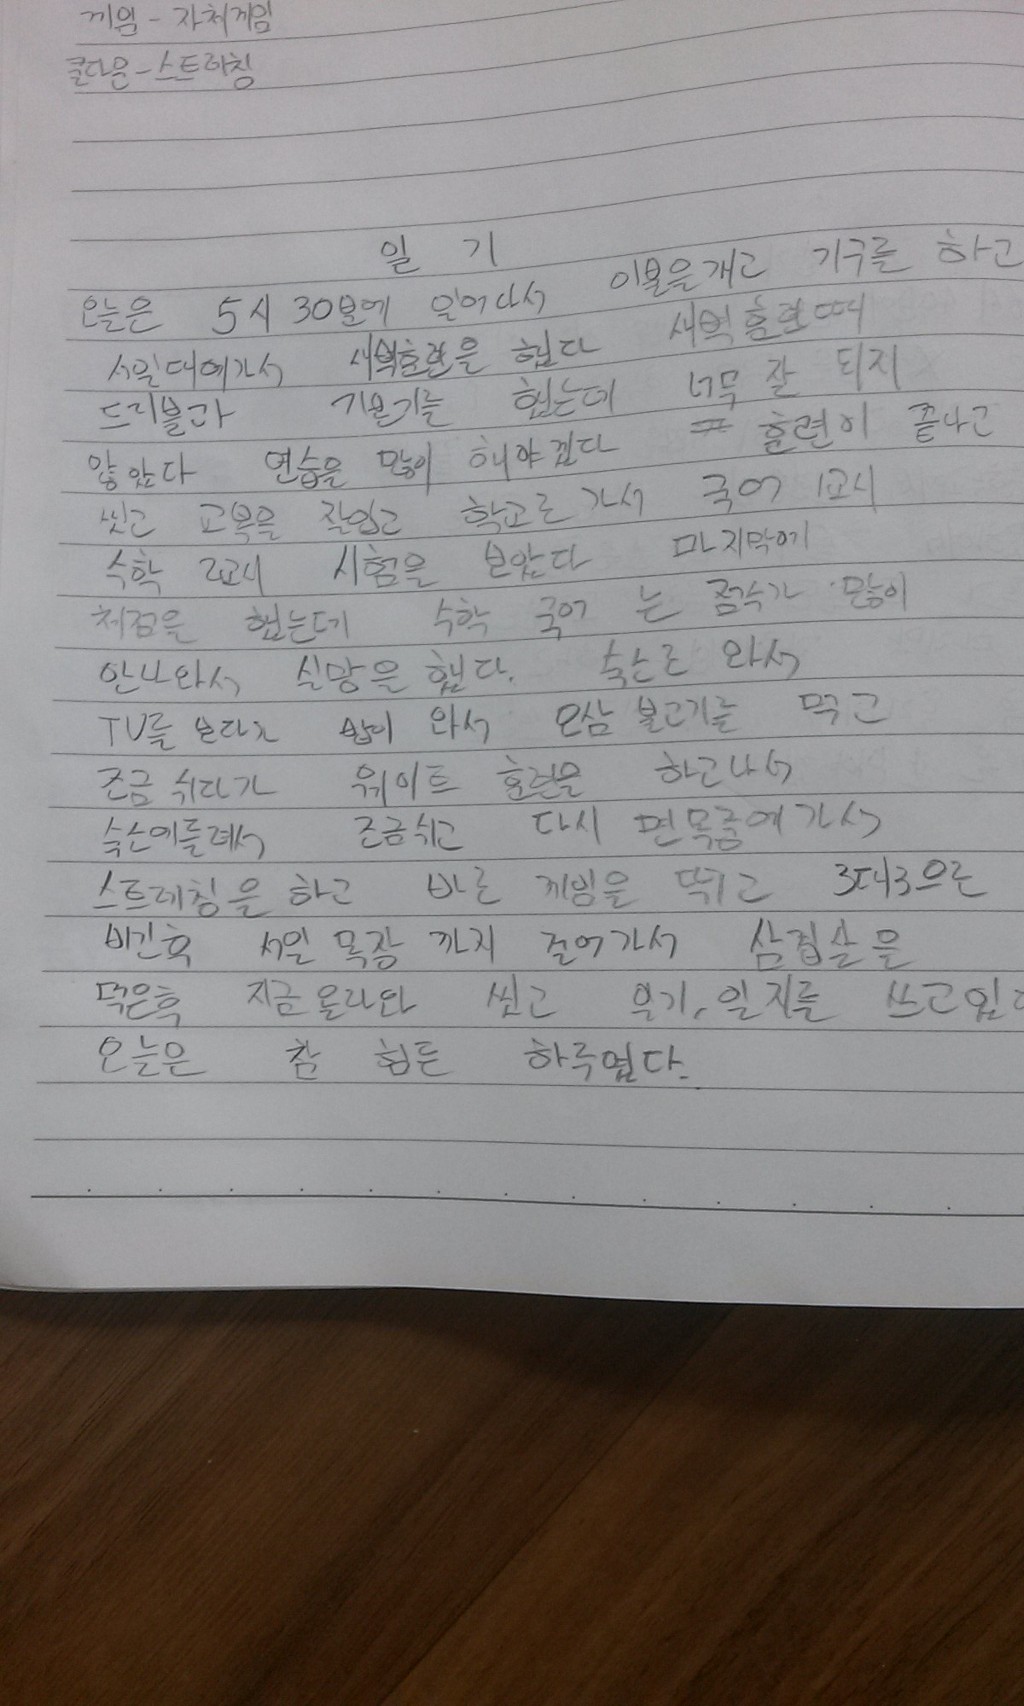 게임 - 자체게임
쿨다운 - 스트레칭
일 기
오늘은 5시 30분에 일어나서 이불을개고 기구를 하고
서일대에가서 새벽훈련을 했다 새벽훈련때
드리블과 기본기를 했는데 너무 잘 되지
않았다 연습을 많이 해야겠다 훈련이 끝나고
씻고 교복을 잘입고 학교로가서 국어 1교시
수학 2교시 시험을 보았다 마지막에
체점을 했는데 수학 국어 는 점수가 많이
안나와서 실망을했다. 숙소로 와서
TV를 보다가 밥이 와서 오삼불고기를 먹고
조금쉬다가 웨이트 훈련을 하고나서
숙소에들려서 조금쉬고 다시 면목중에가서
스트레칭을하고 바로 게임을 뛰고 3대3으로
비긴후 서일 목장 까지 걸어가서 삼겹살을
먹은후 지금올라와 씻고 일지를 쓰고있다
오늘은 참 힘든 하루였다.